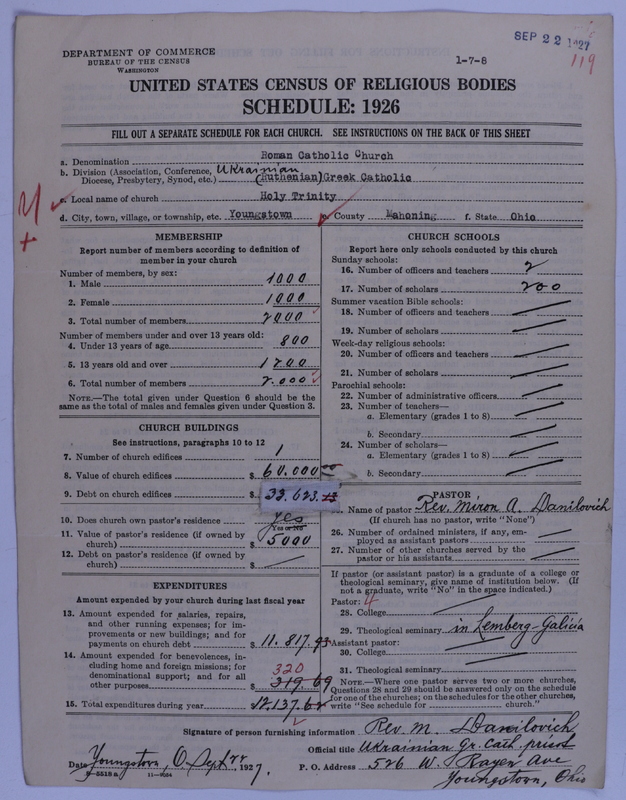 SEP 22 1927
119
DEPARTMENT OF COMMERCE
BUREAU OF THE CENSUS
WASHINGTON
1-7-8
UNITED STATES CENSUS OF RELIGIOUS BODIES
SCHEDULE: 1926
FILL OUT A SEPARATE SCHEDULE FOR EACH CHURCH. SEE INSTRUCTIONS ON THE BACK OF THIS SHEET
a. Denomination Roman Catholic Church
b. Division (Association, Conference, Diocese, Presbytery, Synod, etc.) Ukrainian (Ruthenian) Greek Catholic
c. Local name of church Holy Trinity
d. City, town, village, or township, etc. Youngstown e. County Mahoning f. State Ohio
MEMBERSHIP
Report number of members according to definition of
member in your church
Number of members, by sex:
1. Male 1000
2. Female 1000
3. Total number of members 2000
Number of members under and over 13 years old:
4. Under 13 years of age 800
5. 13 years old and over 1200
6. Total number of members 2.000
NOTE.—The total given under Question 6 should be
same as the total of males and females given under Question 3.
CHURCH BUILDINGS
See instructions, paragraphs 10 to 12
7. Number of church edifices 1
8. Value of church edifices $ 60.000 00
9. Debt on church edifices $ 33.623.13
10. Does church own pastor's residence yes
Yes or No
11. Value of pastor's residence (if owned by
church) $ 5000
12. Debt on pastor's residence (if owned by
church) $
EXPENDITURES
Amount expended by your church during last fiscal year
13. Amount expended for salaries, repairs,
and other running expenses; for im-
provements or new buildings; and for
payments on church debt $ 11.817.93
14. Amount expended for benevolences, in-
cluding home and foreign missions; for
denominational support; and for all
other purposes $ 319.69
320
15. Total expenditures during year $ 12.137.62
CHURCH SCHOOLS
Report here only schools conducted by this church
Sunday schools:
16. Number of officers and teachers 2
17. Number of scholars 200
Summer vacation Bible schools:
18. Number of officers and teachers
19. Number of scholars
Week-day religious schools:
20. Number of officers and teachers
21. Number of scholars
Parochial schools:
22. Number of administrative officers
23. Number of teachers—
a. Elementary (grades 1 to 8)
b. Secondary
24. Number of scholars—
a. Elementary (grades 1 to 8)
b. Secondary
PASTOR
Name of pastor Rev. Miron A. Danilovich
(If church has no pastor, write "None")
26. Number of ordained ministers, if any, em-
ployed as assistant pastors
27. Number of other churches served by the
pastor or his assistants
If pastor (or assistant pastor) is a graduate of a college or
theological seminary, give name of institution below. (If
not a graduate, write "No" in the space indicated.)
Pastor: 4
28. College
29. Theological seminary in Lemberg-Galicia
Assistant pastor:
30. College
31. Theological seminary
NOTE.—Where one pastor serves two or more churches,
Questions 28 and 29 should be answered only on the schedule
for one of the churches; on the schedules for the other churches,
write "See schedule for church."
Signature of person furnishing information Rev. M. Danilovich
Official title Ukrainian Gr. Cath. priest
Date Youngstown, O Sept 22 1927.
P. O. Address 526 W. Rayen Ave
Youngstown, Ohio
8-5518a 11-9054